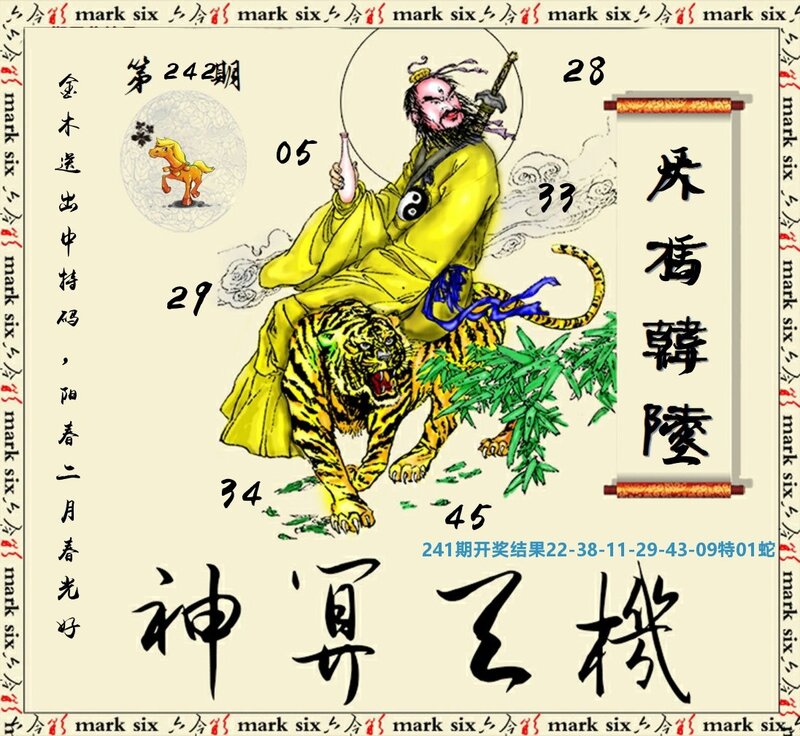 mark six mark six mark six mark six mark six
第242期
28
05
33
29
34
45
金木送出中特码，阳春二月春光好
韓陵
241期开奖结果22-38-11-29-43-09特01蛇
神算天機
mark six mark six mark six mark six
mark six mark six mark six mark six
mark six mark six mark six mark six mark six